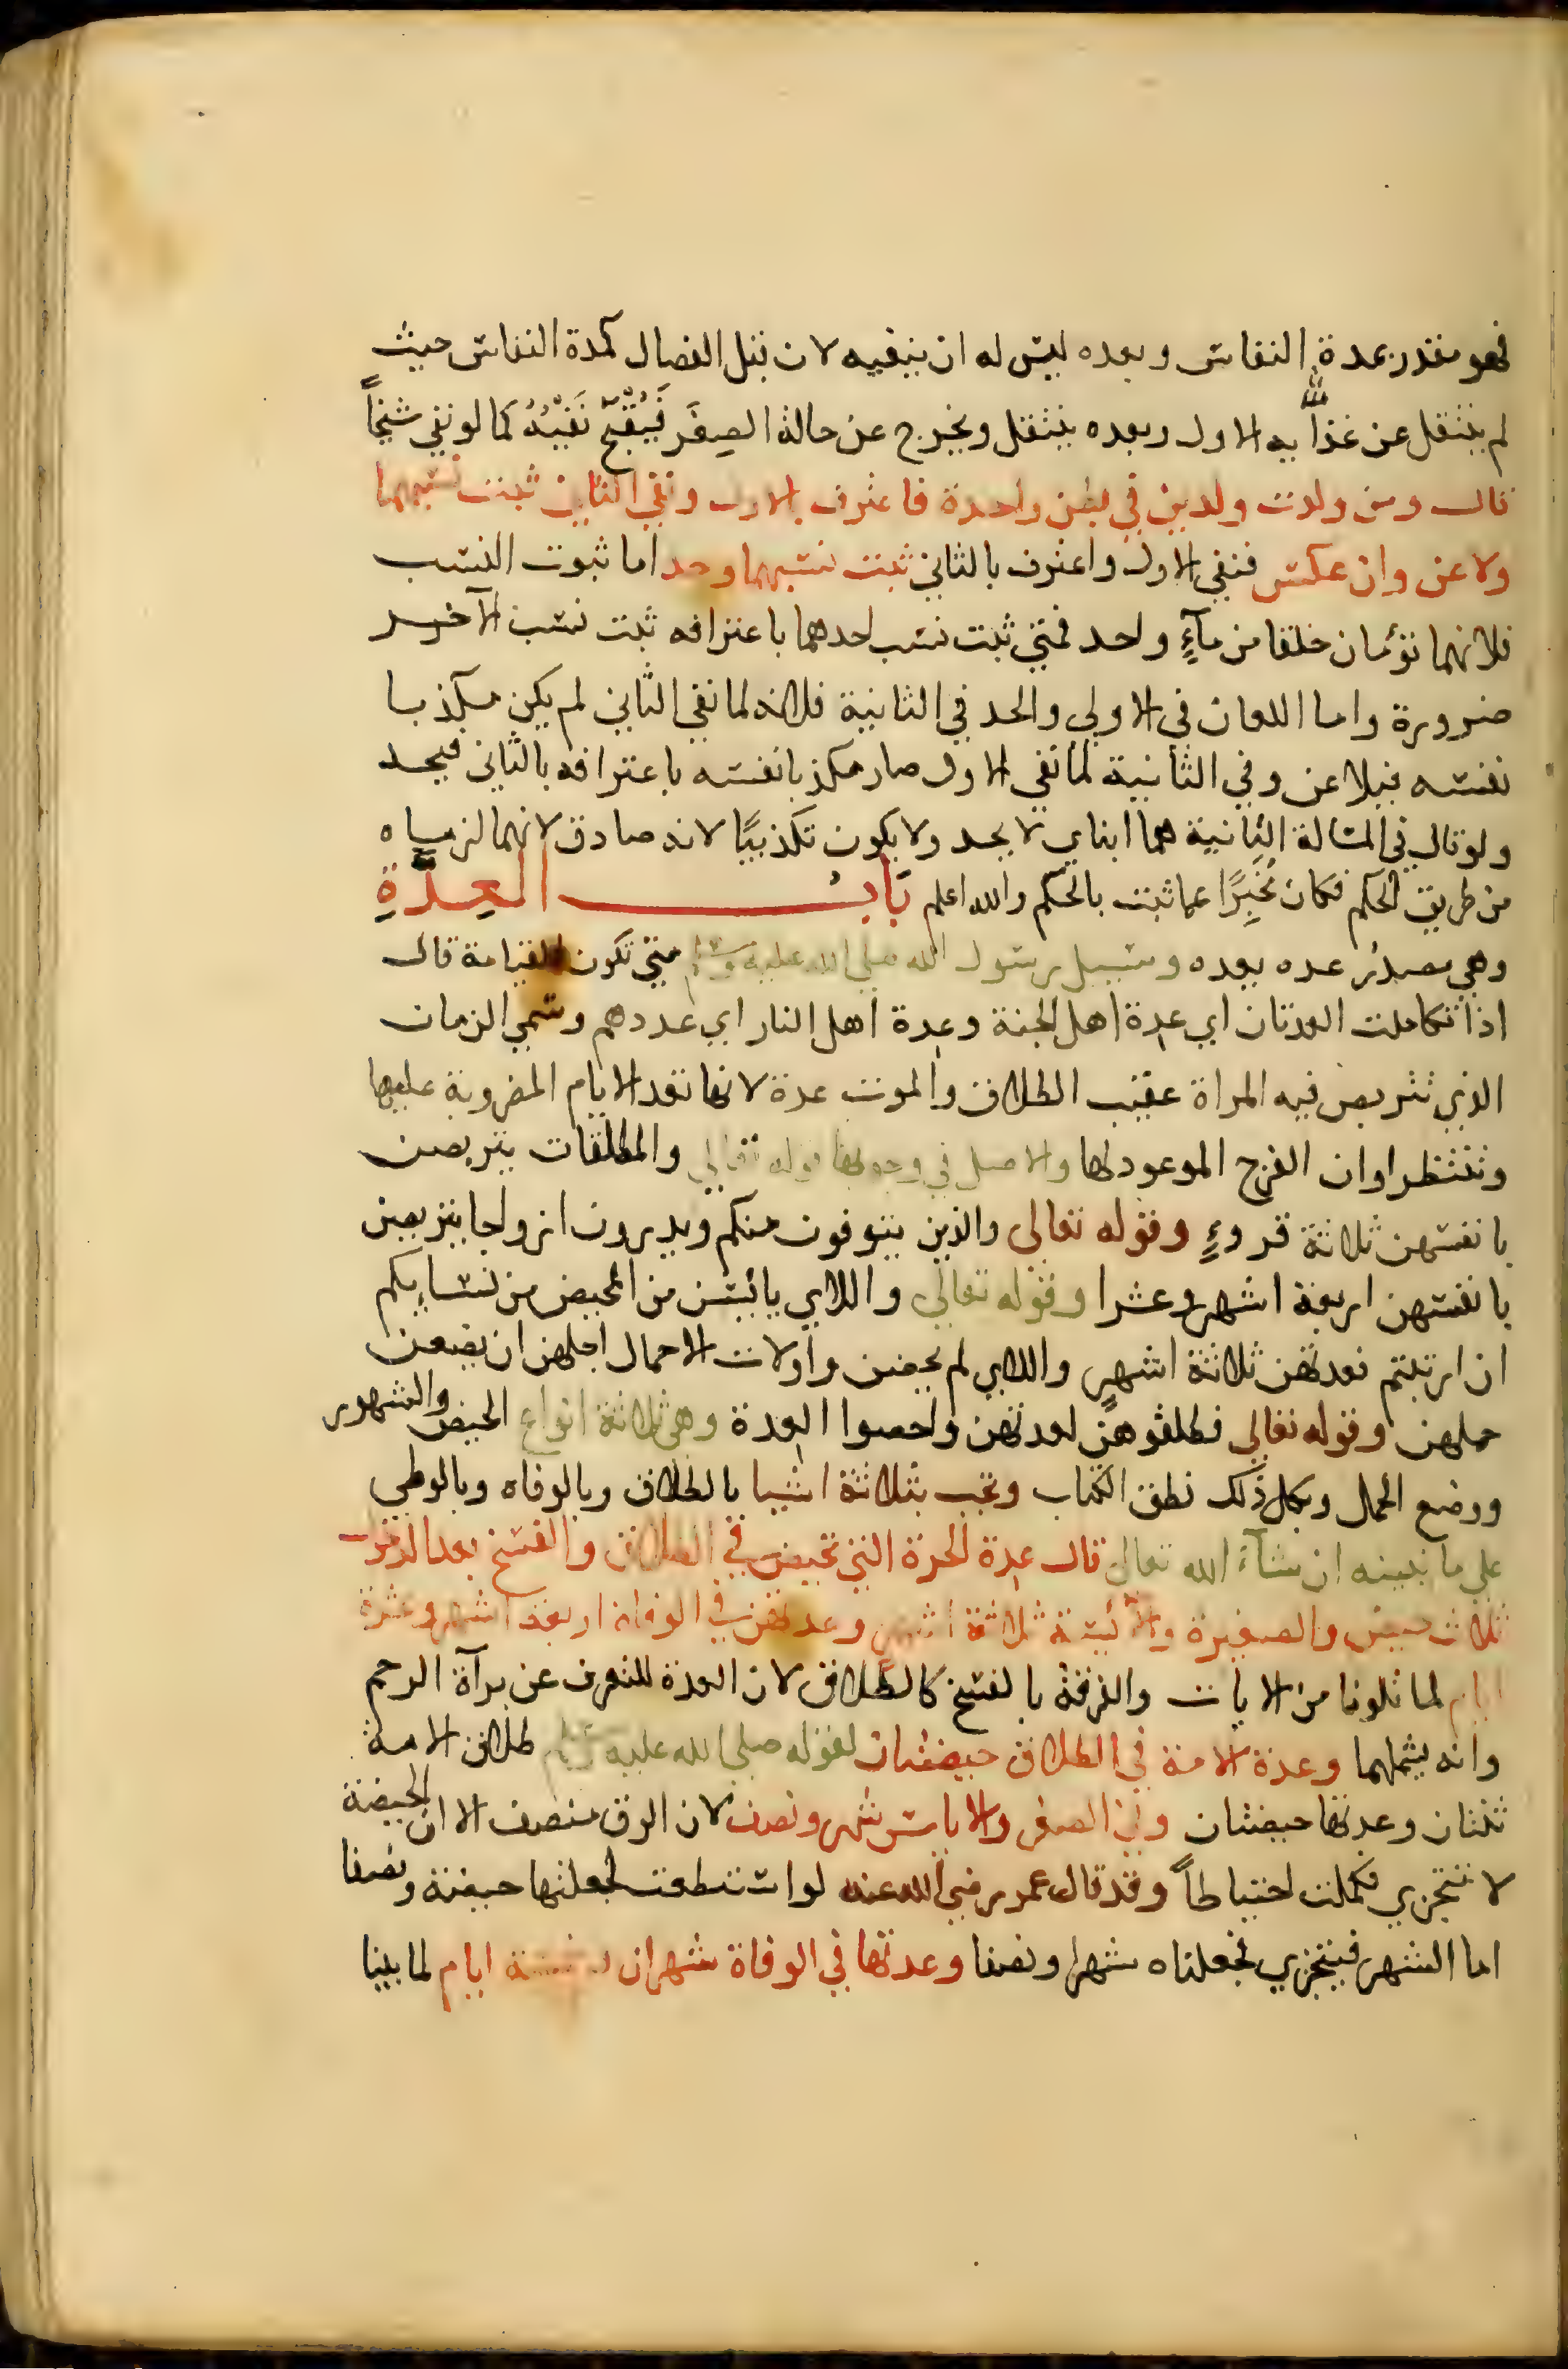 فهو مقدر بمدة النفاس وبعده ليس له ان ينفيه لان قبل الفصال كمدة النفاس حيث
لم ينتقل عن غذائه الاول وبعده ينتقل ويخرج عن حالة الصِغَر فَيُقَبَّحُ نَفْيُهُ كما لو نفي شيخاً
قال ومن ولدت ولدين في بطن واحدة فاعترف بالاول ونفي الثاني ثبت نسبهما
ولاعن وان عكس فنفي الاول واعترف بالثاني ثبت نسبهما وحد اما ثبوت النسب
فلانهما توئمان خلقا من مآءٍ واحد فمتي ثبت نسب احدهما باعترافه ثبت نسب الآخر
ضرورة واما اللعان في الاولي والحد في الثانية فلانه لما نفي الثاني لم يكن مكذبا
نفسه فيلاعن وفي الثانية لما نفي الاول صار مكذبا نفسه باعترافه بالثاني فيحد
ولو قال في المسالة الثانية هما ابناي لا يحد ولا يكون تكذيبًا لانه صادق لانهما لزماه
من طريق الحكم فكان مُخْبِرًا عما ثبت بالحكم والله اعلم بَابُ العِدَّةِ
وهي مصدر عده يعده وسيل رسول الله صلي الله عليه وسلم متي تكون القيامة قال
اذا تكاملت العدتان اي عدة اهل الجنة وعدة اهل النار اي عددهم وسمي الزمان
الذي تتربص فيه المراة عقيب الطلاق والموت عدة لانها تعد الايام المضروبة عليها
وتنتظر اوان الفرج الموعود لها والاصل في وجوبها قوله تعالي والمطلقات يتربصن
بانفسهن ثلاثة قروءٍ وقوله تعالي والذين يتوفون منكم ويذرون ازواجا يتربصن
بانفسهن اربعة اشهر وعشرا وقوله تعالي واللاي يائيسن من المحيض من نسايكم
ان ارتبتم فعدتهن ثلاثة اشهر واللاي لم يحضن واولات الاحمال اجلهن ان يضعن
حملهن وقوله تعالي فطلقوهن لعدتهن واحصوا العدة وهي ثلاثة انواع الحيض والشهور
ووضع الحمل وبكل ذلك نطق الكتاب وتجب بثلاثة اشيا بالطلاق وبالوفاه وبالوطي
علي ما نبينه ان شآء الله تعالي قال عدة الحرة التي تحيض في الطلاق والفسخ بعد الدخول
ثلاث حيض والصغيرة والآئيسة ثلاثة اشهر وعدتهن في الوفاة اربعة اشهر وعشرة
ايام لما تلونا من الايات والفرقة بالفسخ كالطلاق لان العدة للتعرف عن برآة الرحم
وانه يشملهما وعدة الامة في الطلاق حيضتان لقوله صلي الله عليه وسلم طلاق الامة
ثنتان وعدتها حيضتان وفي الصغر والاياس شهر ونصف لان الرق منصف الا ان الحيضة
لا تتجزي فكملت احتياطاً وقد قال عمر رضي الله عنه لو استطعت لجعلتها حيضة ونصفا
اما الشهر فيتجزي فجعلناه شهرا ونصفا وعدتها في الوفاة شهران وخمسة ايام لما بينا